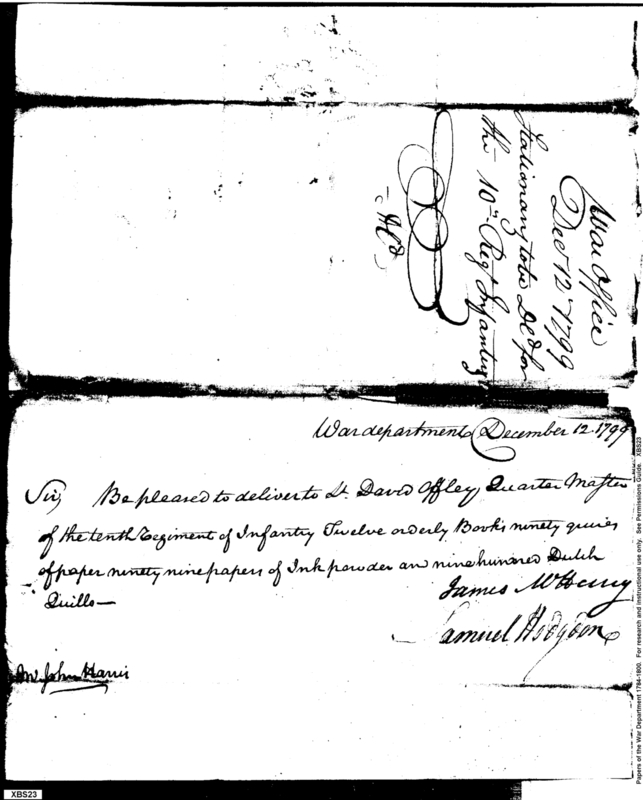 War Office
Decr 12th 1799
Stationary to be Dld for
the 10th Regt Infantry
War department December 12. 1799
Sir, Be pleased to deliver to Lt. David Offley Quarter Master
of the tenth Regiment of Infantry Twelve orderly Books ninety quires
of paper ninety nine papers of Ink powder an nine hundred Dutch
Quills—
James McHenry
Samuel Hodgdon
Mr John Harris
XBS23
Papers of the War Department 1784-1800. For research and instructional use only. See Permissions Guide. XBS23